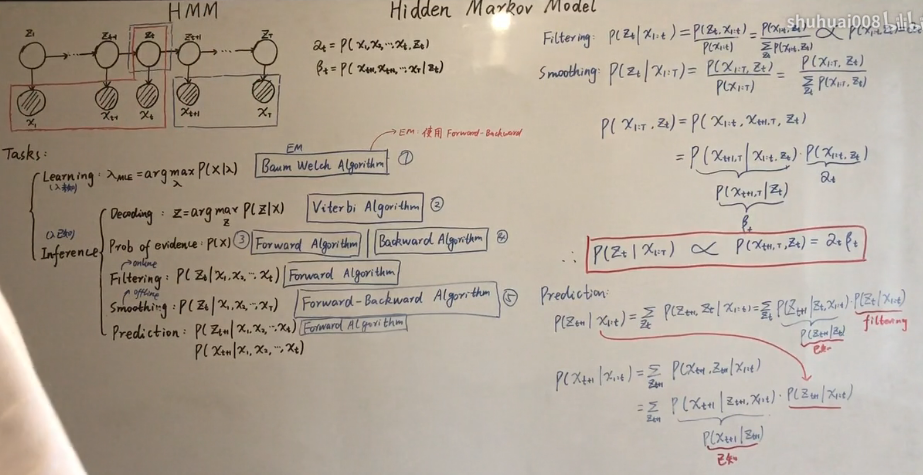 HMM
Hidden Markov Model
shuhuai008
z₁ z_{t-1} z_t z_{t+1} ... z_T
x₁ x_{t-1} x_t x_{t+1} x_T
α_t = P(x₁, x₂, ... x_t, z_t)
β_t = P(x_{t+1}, x_{t+2}, ... x_T | z_t)
EM: 使用 Forward-Backward
Tasks:
Learning: λ_{MLE} = arg max_λ P(X|λ) EM Baum Welch Algorithm ①
(λ未知)
(λ已知)
Inference
Decoding: Z = arg max_Z P(Z|X) Viterbi Algorithm ②
Prob of evidence: P(X) ③ Forward Algorithm | Backward Algorithm ④
online
Filtering: P(z_t | x₁, x₂, ... x_t) Forward Algorithm
offline
Smoothing: P(z_t | x₁, x₂, ..., x_T) Forward-Backward Algorithm ⑤
Prediction: P(z_{t+1} | x₁, x₂, ..., x_t) Forward Algorithm
P(x_{t+1} | x₁, x₂, ..., x_t)
Filtering: P(z_t | x_{1:t}) = P(z_t, x_{1:t}) / P(x_{1:t}) = P(x_{1:t}, z_t) / Σ_{z_t} P(x_{1:t}, z_t) ∝ P(x_{1:t}, z_t) = α_t
Smoothing: P(z_t | x_{1:T}) = P(x_{1:T}, z_t) / P(x_{1:T}) = P(x_{1:T}, z_t) / Σ_{z_t} P(x_{1:T}, z_t)
P(x_{1:T}, z_t) = P(x_{1:t}, x_{t+1:T}, z_t)
= P(x_{t+1:T} | x_{1:t}, z_t) · P(x_{1:t}, z_t)
P(x_{t+1:T} | z_t) α_t
β_t
∴ P(z_t | x_{1:T}) ∝ P(x_{1:T}, z_t) = α_t β_t
Prediction:
P(z_{t+1} | x_{1:t}) = Σ_{z_t} P(z_{t+1}, z_t | x_{1:t}) = Σ_{z_t} P(z_{t+1} | z_t, x_{1:t}) · P(z_t | x_{1:t})
P(z_{t+1} | z_t) filtering
已知
P(x_{t+1} | x_{1:t}) = Σ_{z_{t+1}} P(x_{t+1}, z_{t+1} | x_{1:t})
= Σ_{z_{t+1}} P(x_{t+1} | z_{t+1}, x_{1:t}) · P(z_{t+1} | x_{1:t})
P(x_{t+1} | z_{t+1})
已知